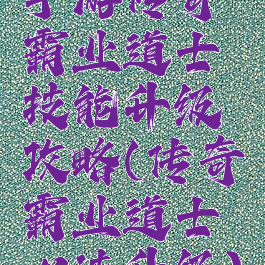 手游传奇
霸业道士
技能升级
攻略(传奇
霸业道士